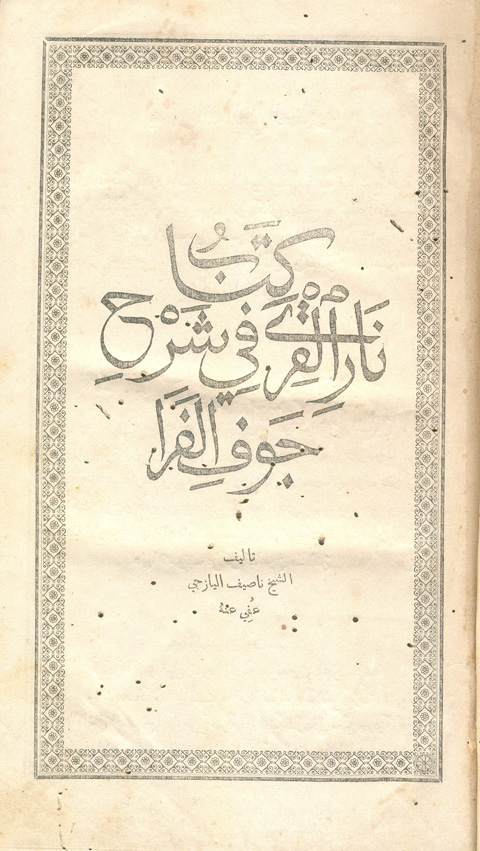 كتابُ
نَارِ الْقِرَى فِي شَرْحِ
جَوفِ الفَرَا
تاليف
الشيخ ناصيف اليازجي
عُفِي عنهُ